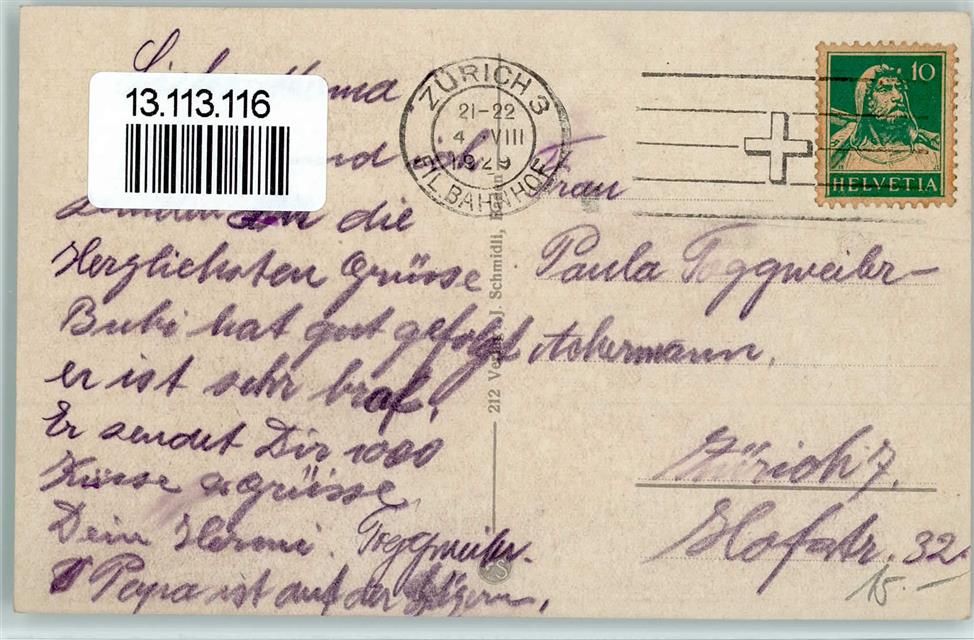 13.113.116
ZÜRICH 3
21-22
4 VIII
1929
SIL. BAHNHOF
10
HELVETIA
die
Herzlichsten Grüsse
Bubi hat gut gefolgt
er ist sehr braf.
Er sendet Dir 1000
Küsse & grüsse
Dein Hermi. Toggweiler.
Papa ist auf der
212 J. Schmidli,
Frau
Paula Toggweiler-
Ackermann,
Zürich 7.
Hofstr. 32
15.-